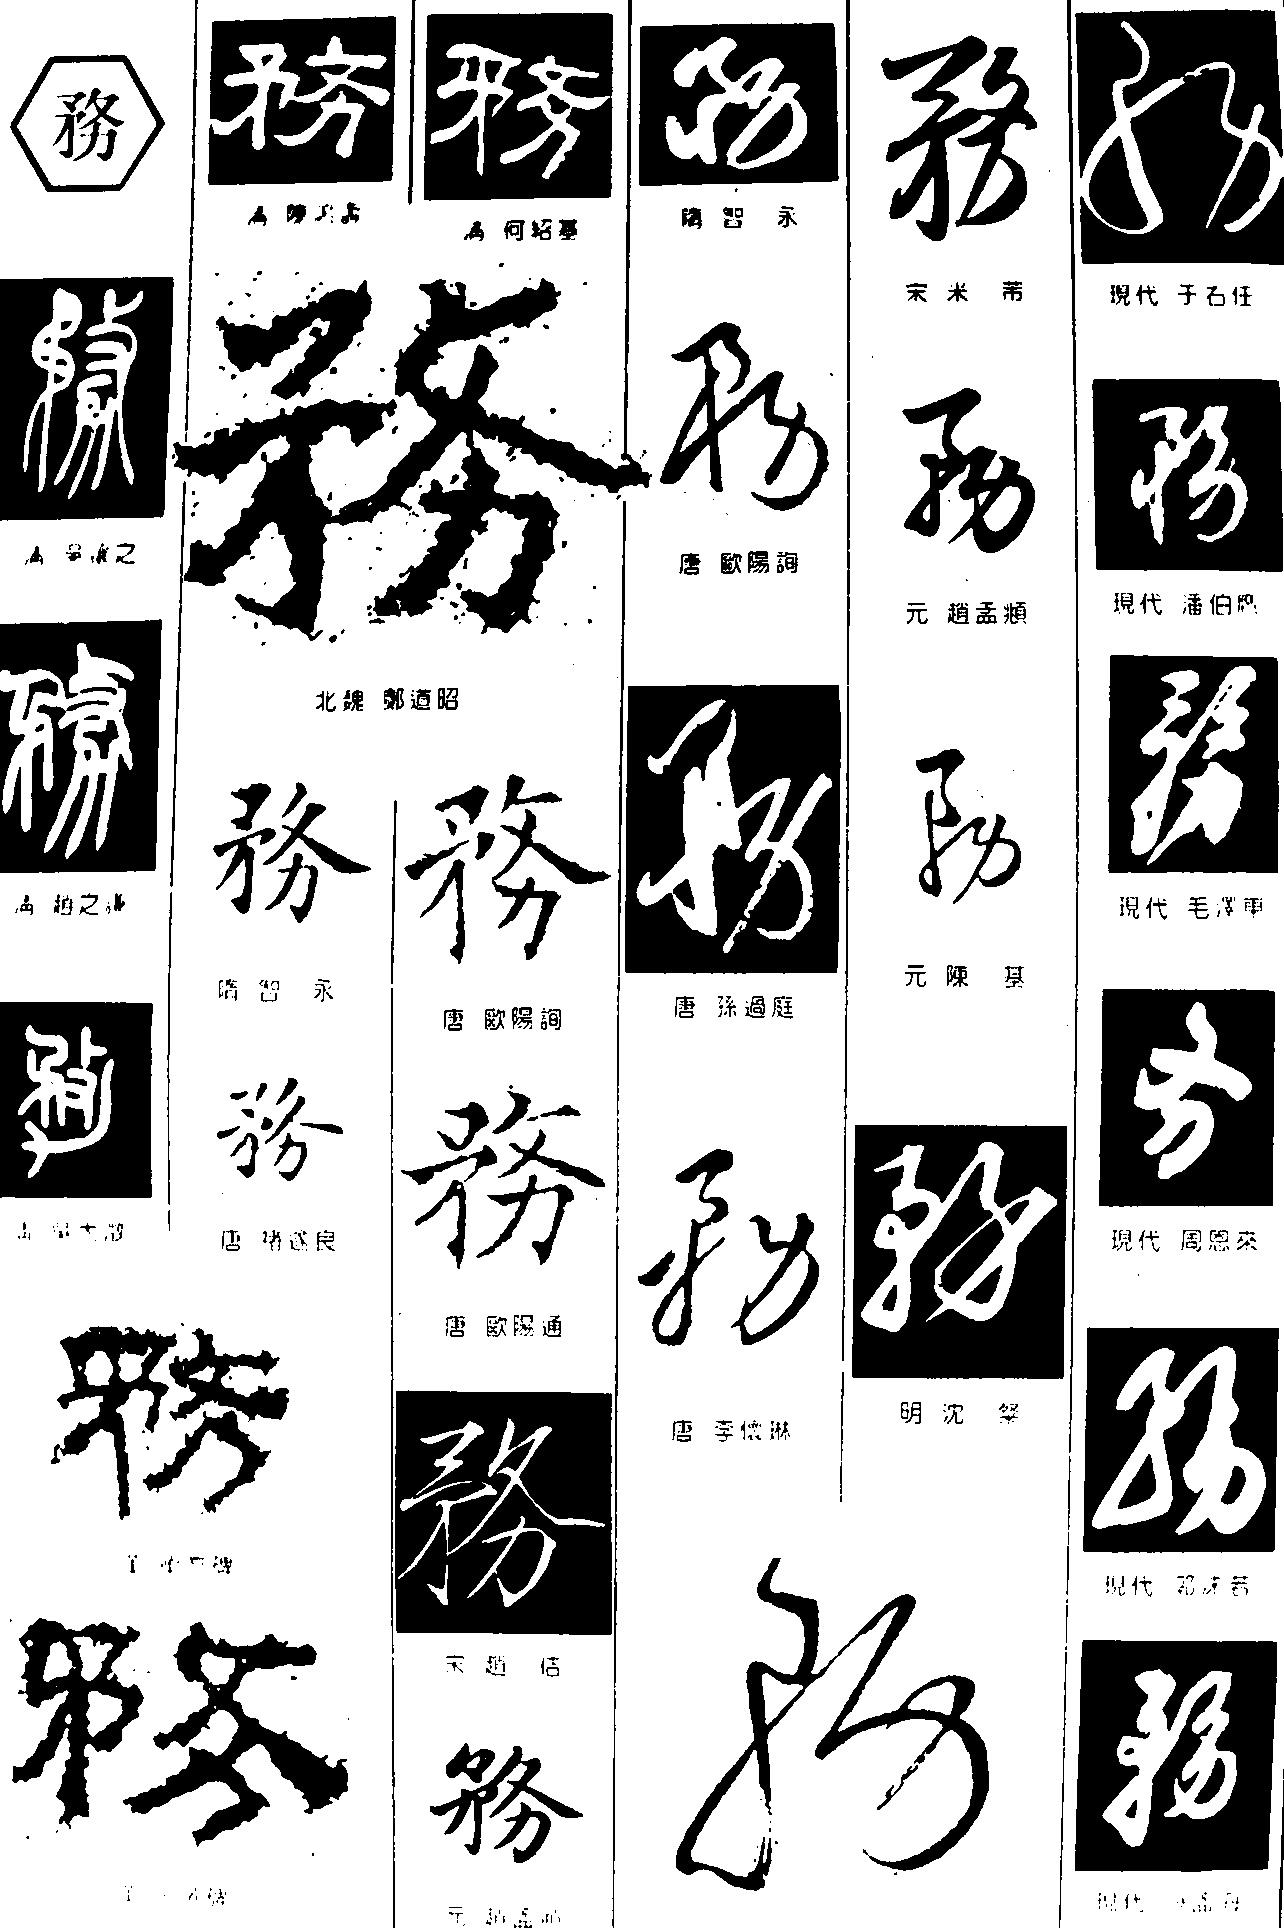 務
務
務
務
務
務
務
務
務
務
北魏 鄭道昭
務
隋 智 永
務
唐 褚遂良
務
清 何紹基
務
唐 歐陽詢
務
唐 歐陽通
務
宋 趙 佶
務
元 趙孟頫
務
隋 智 永
務
唐 歐陽詢
務
唐 孫過庭
務
唐 李懷琳
務
務
宋 米 芾
務
元 趙孟頫
務
元 陳 基
務
明 沈 粲
務
現代 于右任
務
現代 潘伯鷹
務
現代 毛澤東
务
現代 周恩來
務
現代 郭沫若
務
現代